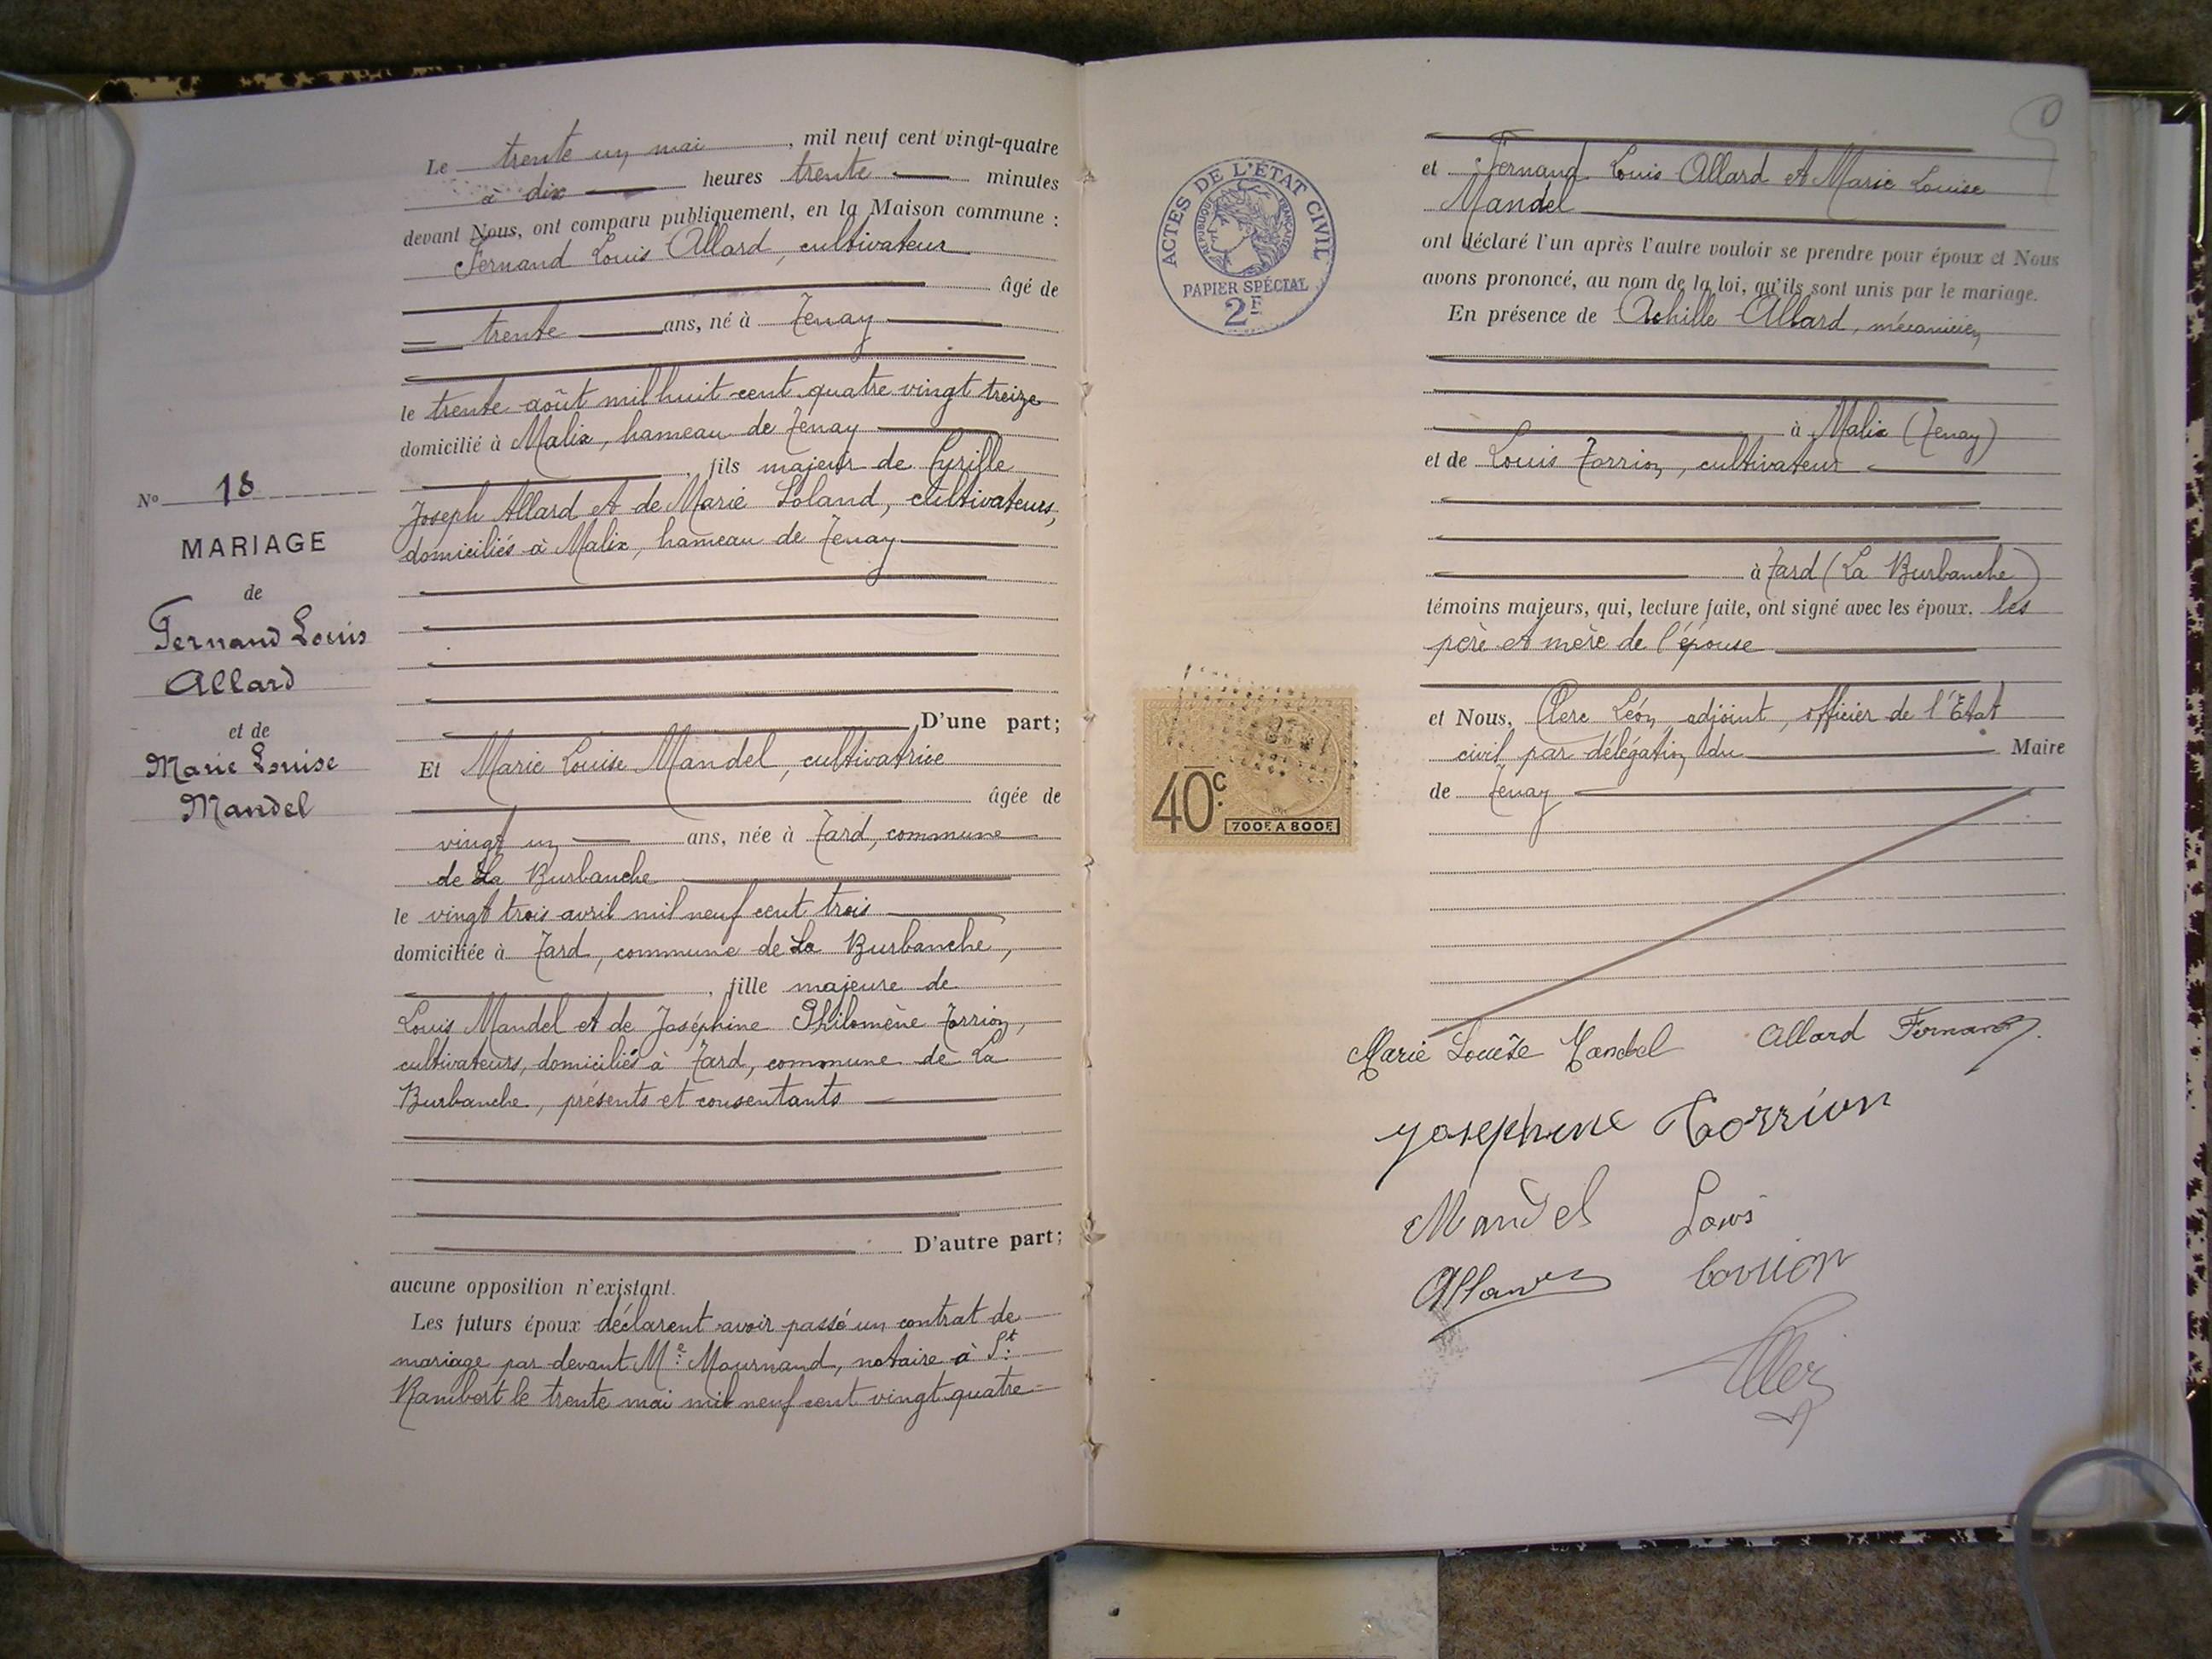 Le trente un mai, mil neuf cent vingt-quatre
à dix heures trente minutes
devant Nous, ont comparu publiquement, en la Maison commune :
Fernand Louis Allard, cultivateur
âgé de
trente ans, né à Tenay
le trente août mil huit cent quatre vingt treize
domicilié à Malix, hameau de Tenay
, fils majeur de Cyrille
Joseph Allard et de Marie Loland, cultivateurs,
domiciliés à Malix, hameau de Tenay
D'une part;
Et Marie Louise Mandel, cultivatrice
âgée de
vingt un ans, née à Tard, commune
de La Burbanche
le vingt trois avril mil neuf cent trois
domiciliée à Tard, commune de La Burbanche,
, fille majeure de
Louis Mandel et de Joséphine Philomène Torrion,
cultivateurs, domiciliés à Tard, commune de La
Burbanche, présents et consentants
D'autre part;
aucune opposition n'existant.
Les futurs époux déclarent avoir passé un contrat de
mariage par devant Me Mournand, notaire à St
Rambert le trente mai mil neuf cent vingt quatre
No 18
MARIAGE
de
Fernand Louis
Allard
et de
Marie Louise
Mandel
ACTES DE L'ÉTAT CIVIL
RÉPUBLIQUE FRANÇAISE
PAPIER SPÉCIAL
2F
40c.
700F. A 800F.
et Fernand Louis Allard et Marie Louise
Mandel
ont déclaré l'un après l'autre vouloir se prendre pour époux et Nous
avons prononcé, au nom de la loi, qu'ils sont unis par le mariage.
En présence de Achille Allard, mécanicien
à Malix (Tenay)
et de Louis Torrion, cultivateur
à Tard (La Burbanche)
témoins majeurs, qui, lecture faite, ont signé avec les époux, les
père et mère de l'épouse
et Nous, Clerc Léon, adjoint, officier de l'Etat
civil par délégation du Maire
de Tenay
Marie Louise Mandel Allard Fernand
Josephine Torrion
Mandel Louis
Allard Torrion